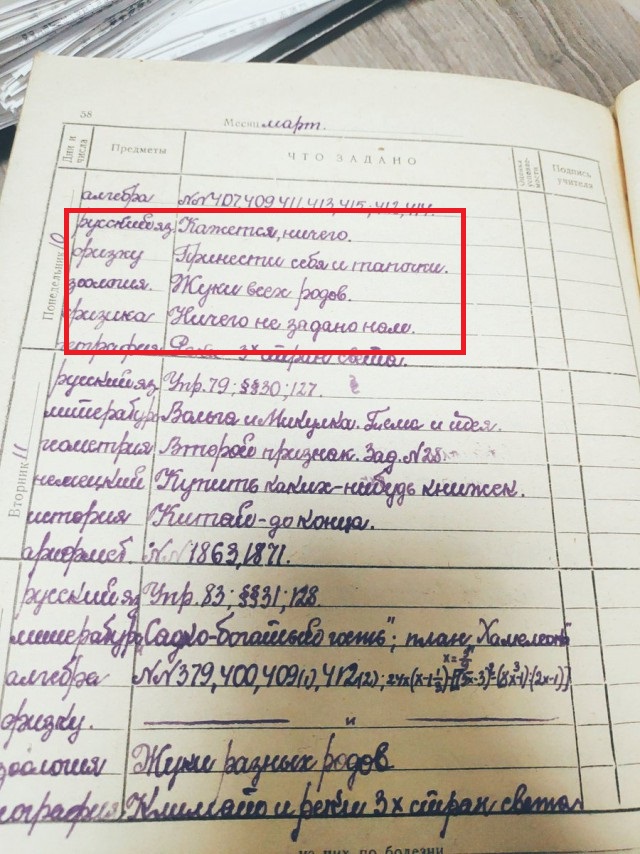 58
Месяц март.
Дни и числа
Предметы
ЧТО ЗАДАНО
Оценка успеваемости
Подпись учителя
Понедельник 10
алгебра №№ 407, 409, 411, 413, 415, 412, 414.
русский яз. Кажется, ничего.
физку Принести себя и тапочки.
зоология. Жуки всех родов.
физика Ничего не задано нам.
география 3х стран света.
Вторник 11
русский яз. Упр. 79; §§30; 127.
литература Вольга и Микулка. Тема и идея.
геометрия Второй признак. Зад. №28
немецкий Купить каких-нибудь книжек.
история Китай - до конца.
арифмет. №№ 1863, 1871.
русский яз Упр. 83; §§31; 128.
литература "Садко-богатый гость"; план "Хамелеон"
алгебра №№ 379, 400, 409(1), 412(2);
физку. и
зоология Жуки разных родов
география Климат и реки 3х стран света
из них по болезни